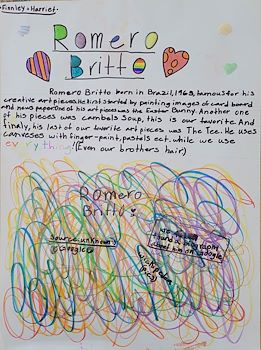 • Finnley + Harriet.
Romero
Britto
Romero Britto born in Brazil, 1963, famous for his
creative art pieces. He first started by painting images of card board
and news paper. One of his art pieces was the Easter Bunny. Another one
of his pieces was Cambols Soup, this is our favorite. And
finaly, his last of our favorite art pieces was The Tee. He uses
canvasses with finger-paint, pastels ect. while we use
every thing! (Even our brothers hair)
Romero
Britto
source: unknown
Google
we
found a biography
on google
wikipedia